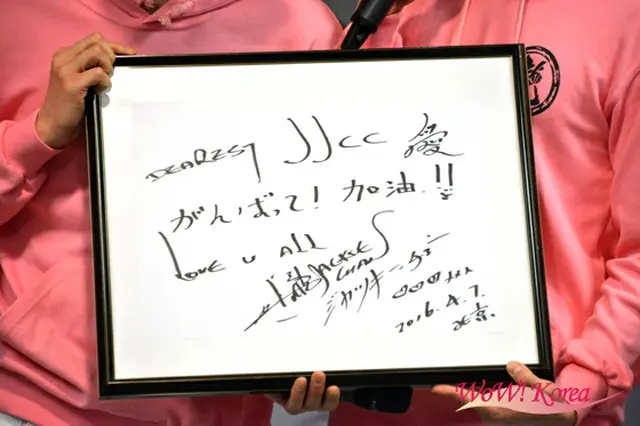 DEAREST JJCC 愛
がんばって! 加油!!
LOVE U ALL
JACKIE
CHAN
ジャッキー・チェン
2016.4.7.
北京
WoW! Korea